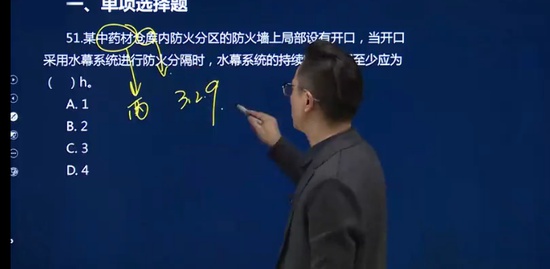 一、单项选择题
51.某中药材仓库内防火分区的防火墙上局部设有开口，当开口
采用水幕系统进行防火分隔时，水幕系统的持续 至少应为
（ ）h。
A. 1
丙 3.2.9.
B. 2
C. 3
D. 4